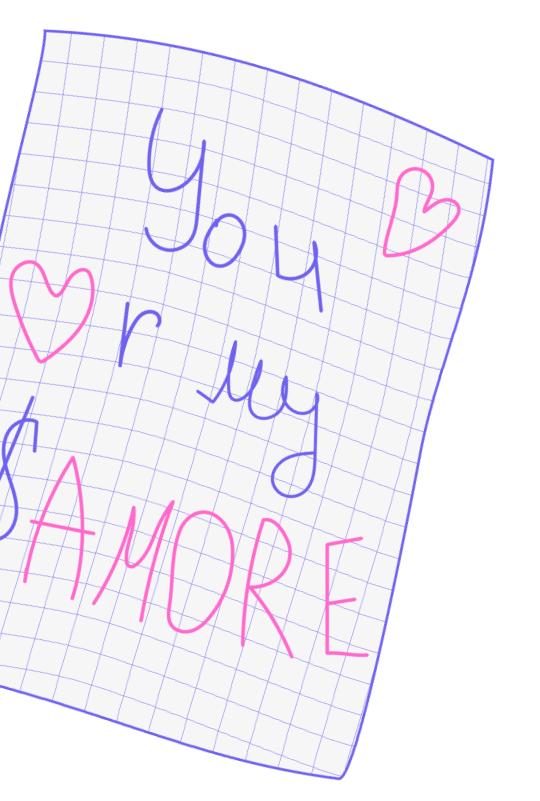 You
r my
AMORE